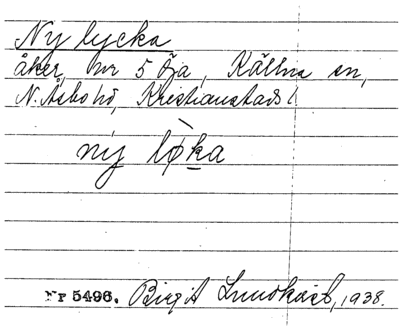 Ny lycka
åker, nr 5 Öja, Källna sn,
N. Åsbo hd, Kristianstads l
ny løka
Nr 5496. Birgit Lundkvist, 1938.